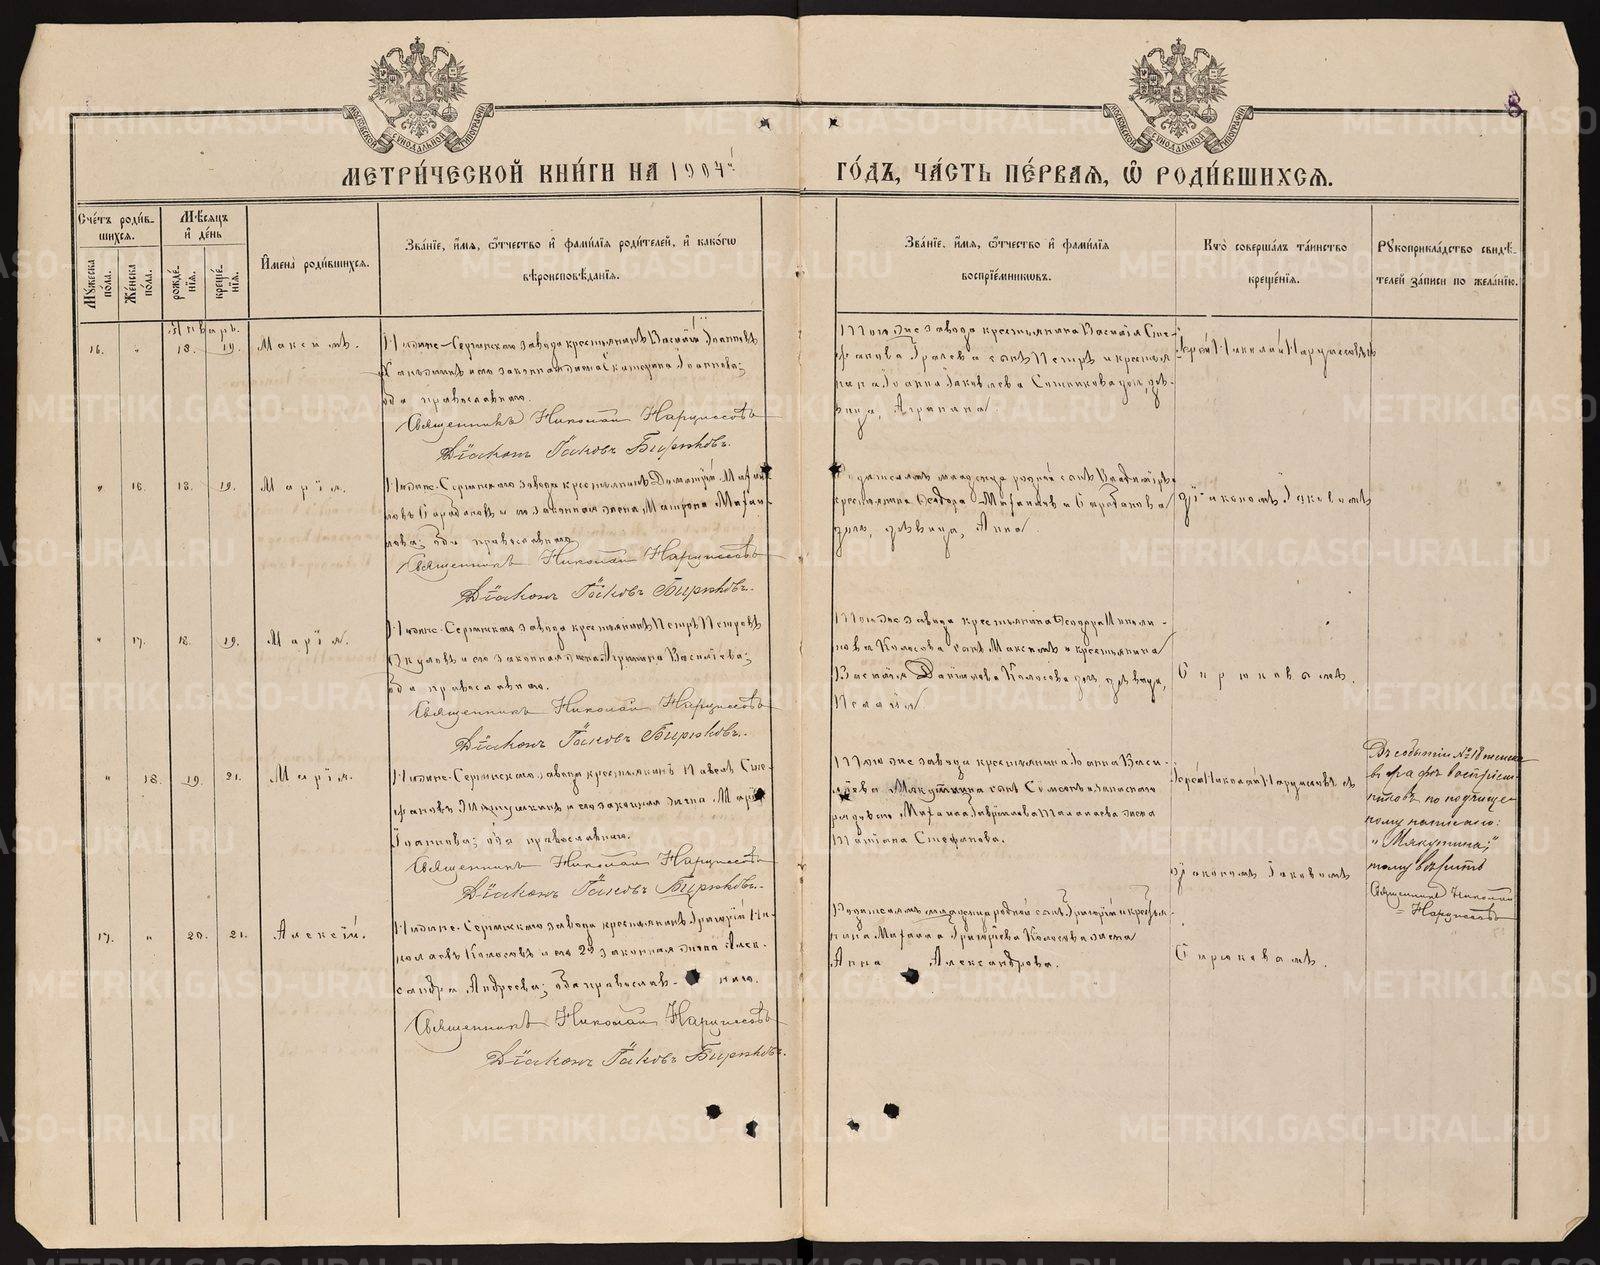 МОСКОВСКОЙ СѴНОДАЛЬНОЙ ТИПОГРАФІИ
МОСКОВСКОЙ СѴНОДАЛЬНОЙ ТИПОГРАФІИ
8
МЕТРИ́ЧЕСКОЙ КНИ́ГИ НА 1904й
ГО́ДЪ, ЧА́СТЬ ПЕ́РВАѦ, Ѿ РОДИ́ВШИХСѦ.
Сче́тъ роди́в-
шихсѧ.
Мꙋжеска по́ла.
Же́нска по́ла.
Мѣ́сѧцъ и҆ де́нь
рожде́нїѧ.
креще́нїѧ.
И҆мена̀ роди́вшихсѧ.
Зва́нїе, и҆́мѧ, ѻ҆́тчество и҆ фами́лїѧ роди́телей, и҆ како́гѡ
вѣроисповѣ́данїѧ.
Зва́нїе, и҆́мѧ, ѻ҆́тчество и҆ фами́лїѧ
воспрїе́мникѡвъ.
Кто̀ соверша́лъ та́инство
креще́нїѧ.
Рꙋкоприкла́дство свидѣ́-
телей за́писи по жела́нїю.
Январь.
16. " 18. 19. Максимъ.
Нижне-Сергинскаго завода крестьянинъ Василій Іоанновъ
и его законная жена Екатерина Іоаннова;
оба православнаго.
Священникъ Николай Нарциссовъ
Діаконъ Іаковъ Бирюковъ.
Того же завода крестьянина Василія Сте-
фанова сынъ Петръ и крестья
нина Іоанна Іаковлева дочь, дѣ-
вица, Агрипина.
Іерей Николай Нарциссовъ
" 16. 18. 19. Марія.
Нижне-Сергинскаго завода крестьянинъ Димитрій Михаи
ловъ и его законная жена Матрона Михаи-
лова; оба православнаго
Священникъ Николай Нарциссовъ
Діаконъ Іаковъ Бирюковъ.
младенца родной сынъ Владиміръ
крестьянина Ѳеодора
дочь, дѣвица, Анна.
діакономъ Іаковомъ
" 17. 18. 19. Марія.
Нижне-Сергинскаго завода крестьянинъ Петръ Петровъ
Окуловъ и его законная жена Агрипина Василіева;
оба православнаго.
Священникъ Николай Нарциссовъ
Діаконъ Іаковъ Бирюковъ.
Того же завода крестьянина Ѳеодора Никола-
ева Колосова сынъ Максимъ и крестьянина
Василія Даніилова Колосова дочь дѣвица,
Пелагія.
Бирюковымъ.
" 18. 19. 21. Марія.
Нижне-Сергинскаго завода крестьянинъ Павелъ Сте-
фановъ и его законная жена Марія
Іоаннова; оба православнаго.
Священникъ Николай Нарциссовъ
Діаконъ Іаковъ Бирюковъ.
Того же завода крестьянина Іоанна Васи-
ліева Мякутина сынъ Симеонъ и запаснаго
рядоваго Михаила Гавріилова жена
Татіана Стефанова.
Іерей Николай Нарциссовъ съ
діакономъ Іаковомъ
Въ событіи № 18 женска
въ графѣ воспріем-
никовъ по подчище-
ному написано:
"Мякутина",
тому вѣрить
Священникъ Николай
Нарциссовъ
17. " 20. 21. Алексій.
Нижне-Сергинскаго завода крестьянинъ Григорій Ни-
колаевъ Колосовъ и его 2я законная жена Алек-
сандра Андреева; оба православ- наго.
Священникъ Николай Нарциссовъ
Діаконъ Іаковъ Бирюковъ.
младенца родной сынъ Григорій и кресть
нина Михаила Григоріева Колосова жена
Анна Александрова.
Бирюковымъ.
METRIKI.GASO-URAL.RU